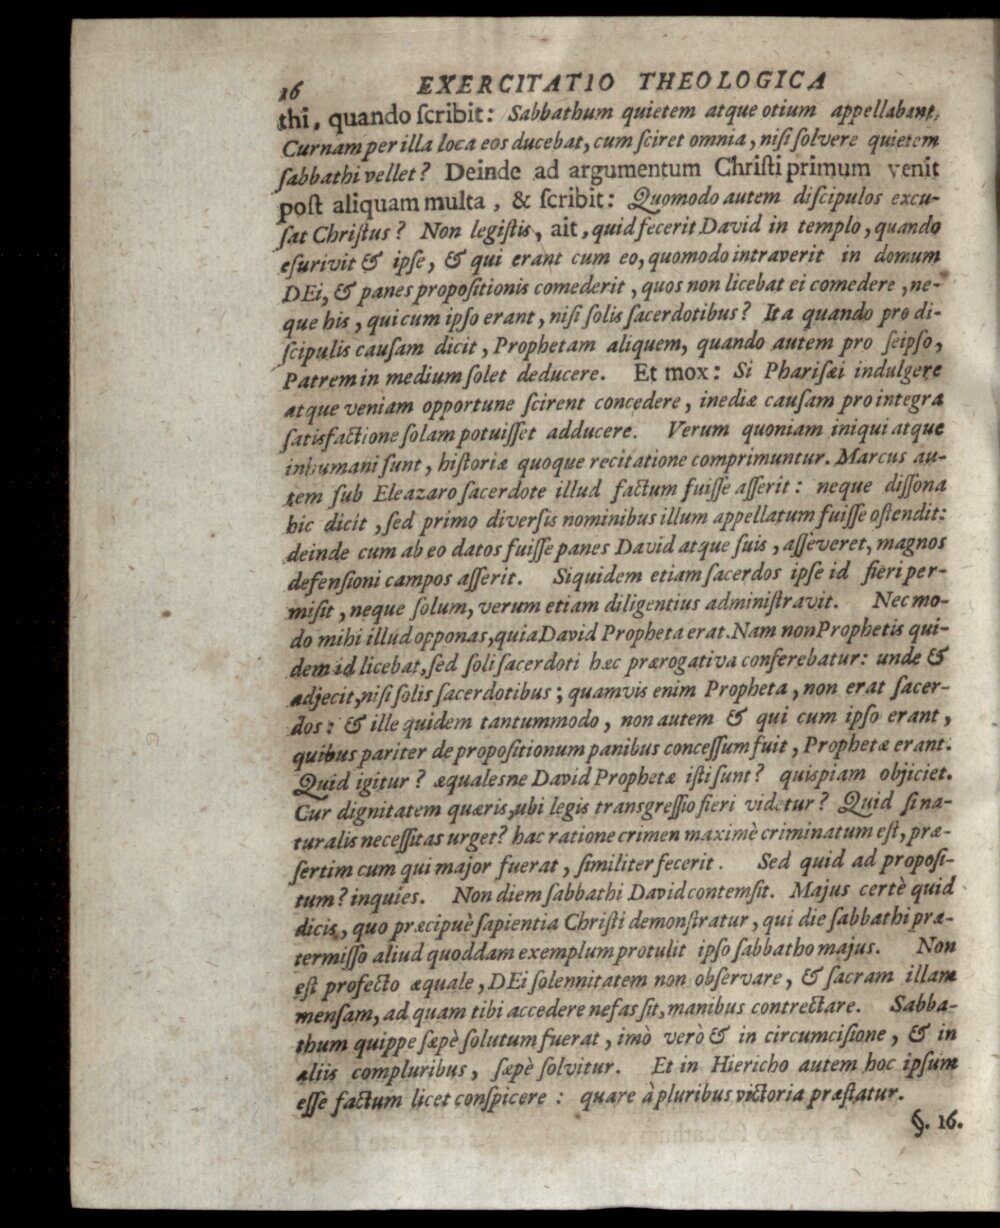 16 EXERCITATIO THEOLOGICA
thi, quando ſcribit: Sabbathum quietem atque otium appellabant,
Curnam per illa loca eos ducebat, cum ſciret omnia, niſi ſolvere quietem
ſabbathi vellet? Deinde ad argumentum Chriſti primum venit
poſt aliquam multa, & ſcribit: Quomodo autem diſcipulos excu-
ſat Chriſtus? Non legiſtis, ait, quid fecerit David in templo, quando
eſurivit & ipſe, & qui erant cum eo, quomodo intraverit in domum
DEi, & panes propoſitionis comederit, quos non licebat ei comedere, ne-
que his, qui cum ipſo erant, niſi ſolis ſacerdotibus? Ita quando pro di-
ſcipulis cauſam dicit, Prophetam aliquem, quando autem pro ſeipſo,
Patrem in medium ſolet deducere. Et mox: Si Phariſæi indulgere
atque veniam opportune ſcirent concedere, inediæ cauſam pro integra
ſatisfactione ſolam potuiſſet adducere. Verum quoniam iniqui atque
inhumani ſunt, hiſtoriæ quoque recitatione comprimuntur. Marcus au-
tem ſub Eleazaro ſacerdote illud factum fuiſſe aſſerit: neque diſſona
hic dicit, ſed primo diverſis nominibus illum appellatum fuiſſe oſtendit:
deinde cum ab eo datos fuiſſe panes David atque ſuis, aſſeveret, magnos
defenſioni campos aſſerit. Siquidem etiam ſacerdos ipſe id fieri per-
miſit, neque ſolum, verum etiam diligentius adminiſtravit. Nec mo-
do mihi illud opponas, quia David Propheta erat. Nam non Prophetis qui-
dem id licebat, ſed ſoli ſacerdoti hæc prærogativa conferebatur: unde &
adjecit, niſi ſolis ſacerdotibus; quamvis enim Propheta, non erat ſacer-
dos: & ille quidem tantummodo, non autem & qui cum ipſo erant,
quibus pariter de propoſitionum panibus conceſſum fuit, Prophetæ erant.
Quid igitur? æqualesne David Prophetæ iſti ſunt? quispiam objiciet.
Cur dignitatem quæris, ubi legis transgreſſio fieri videtur? Quid ſi na-
turalis neceſſitas urget? hac ratione crimen maximè criminatum eſt, præ-
ſertim cum qui major fuerat, ſimiliter fecerit. Sed quid ad propoſi-
tum? inquies. Non diem ſabbathi David contemſit. Majus certè quid
dicis, quo præcipuè ſapientia Chriſti demonſtratur, qui die ſabbathi præ-
termiſſo aliud quoddam exemplum protulit ipſo ſabbatho majus. Non
eſt profecto æquale, DEi ſolennitatem non obſervare, & ſacram illam
menſam, ad quam tibi accedere nefas ſit, manibus contrectare. Sabba-
thum quippe ſæpè ſolutum fuerat, imò verò & in circumciſione, & in
aliis compluribus, ſæpè ſolvitur. Et in Hiericho autem hoc ipſum
eſſe factum licet conſpicere: quare à pluribus victoria præſtatur.
§. 16.